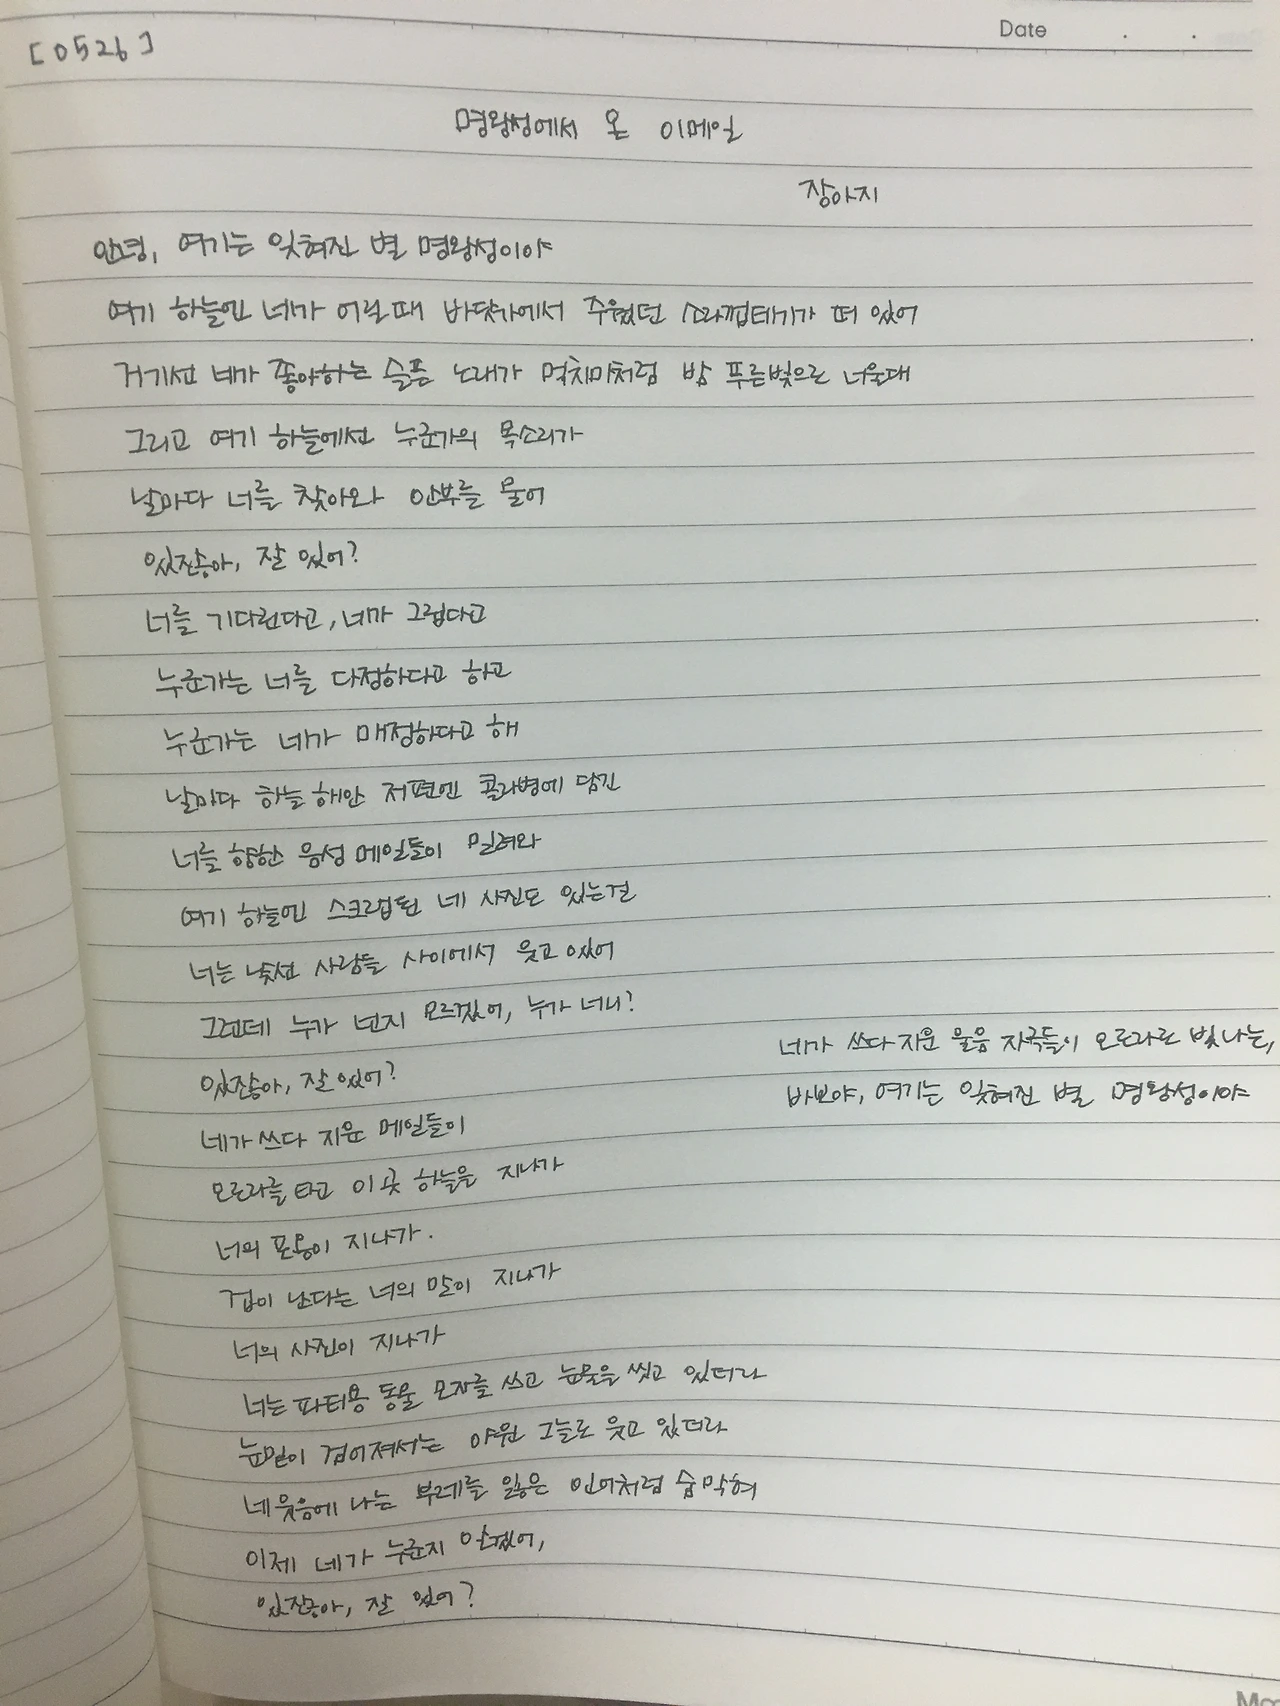 [0526]
Date . .
명왕성에서 온 이메일
장아지
안녕, 여기는 잊혀진 별 명왕성이야
여기 하늘엔 네가 어릴 때 바닷가에서 주웠던 소라껍데기가 떠 있어
거기선 네가 좋아하는 슬픈 노래가 먹치마처럼 밤 푸른빛으로 너울대
그리고 여기 하늘에선 누군가의 목소리가
날마다 너를 찾아와 안부를 물어
있잖아, 잘 있어?
너를 기다린다고, 네가 그립다고
누군가는 너를 다정하다고 하고
누군가는 네가 매정하다고 해
날마다 하늘 해안 저편엔 콜라병에 담긴
너를 향한 음성 메일들이 밀려와
여기 하늘엔 스크랩된 네 사진도 있는걸
너는 낯선 사람들 사이에서 웃고 있어
그런데 누가 넌지 모르겠어, 누가 너니?
있잖아, 잘 있어?
네가 쓰다 지운 메일들이
오로라를 타고 이곳 하늘을 지나가
너의 포옹이 지나가.
겁이 난다는 너의 말이 지나가
너의 사진이 지나가
너는 파티용 동물 모자를 쓰고 눈물을 씻고 있더라
눈밑이 검어져서는 야윈 그늘로 웃고 있더라
네 웃음에 나는 부레를 잃은 인어처럼 숨 막혀
이제 네가 누군지 알겠어,
있잖아, 잘 있어?
네가 쓰다 지운 울음 자국들이 오로라로 빛나는,
바보야, 여기는 잊혀진 별 명왕성이야